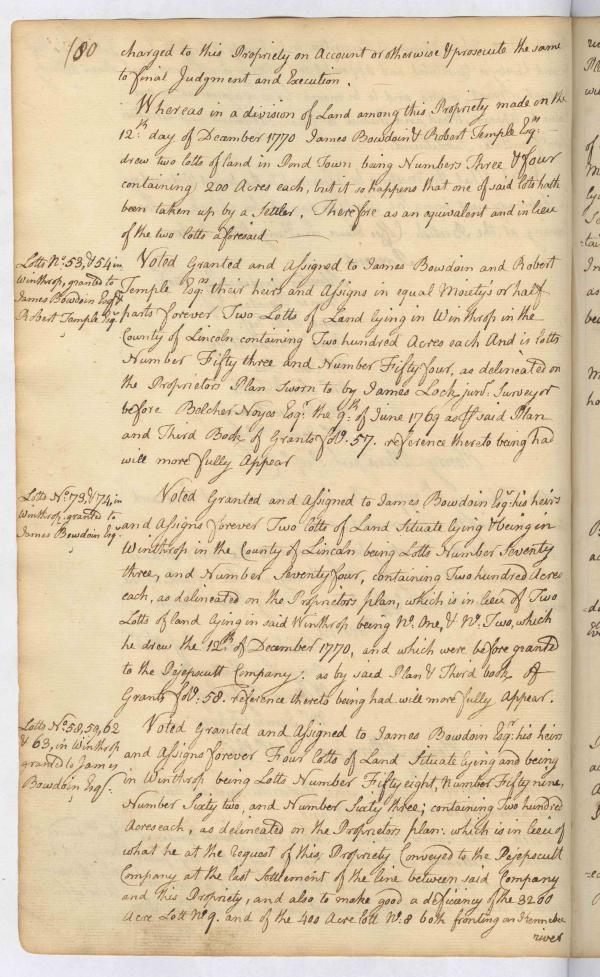 180
charged to this Propriety on Account or otherwise & prosecute the same
to final Judgment and Execution.
Whereas in a division of Land among this Propriety made on the
12th. day of December 1770 James Bowdoin & Robert Temple Esqrs.
drew two lotts of land in Pond Town being Numbers Three & four
containing 200 Acres each, but it so happens that one of said lots hath
been taken up by a Settler. Therefore as an equivalent and in lieu
of the two lotts aforesaid
Lotts No. 53, & 54 in
Winthrop, granted to
James Bowdoin Esqr. &
Robert Temple Esqr.
Voted Granted and Assigned to James Bowdoin and Robert
Temple Esqrs. their heirs and Assigns in equal Moiety's or half
parts forever Two Lotts of Land lying in Winthrop in the
County of Lincoln containing Two hundred Acres each And is lotts
Number Fifty three and Number Fifty four, as delineated on
the Proprietors Plan Sworn to by James Lock junr. Surveyor
before Belcher Noyes Esqr. the 9th of June 1769 as 
said Plan
and Third Book of Grants fol. 57. reference thereto being had
will more fully Appear
Lotts No. 73, & 74, in
Winthrop, granted to
James Bowdoin Esqr.
Voted Granted and Assigned to James Bowdoin Esqr. his heirs
and Assigns forever Two lotts of Land Situate lying & being in
Winthrop in the County of Lincoln being Lotts Number Seventy
three, and Number Seventy four, containing Two hundred Acres
each, as delineated on the Proprietors plan, which is in lieu of Two
Lotts of land lying in said Winthrop being No. One, & No. Two, which
he drew the 12th of December 1770, and which were before granted
to the Pejepscutt Company: as by said Plan & Third book of
Grants fol. 58. reference thereto being had will more fully Appear.
Lotts No. 58, 59, 62
& 63, in Winthrop
granted to James
Bowdoin Esqr.
Voted Granted and Assigned to James Bowdoin Esqr. his heirs
and Assigns forever Four lotts of Land Situate lying and being
in Winthrop being Lotts Number Fifty eight, Number Fifty nine,
Number Sixty two, and Number Sixty three; containing Two hundred
Acres each, as delineated on the Proprietors plan. which is in lieu of
what he at the request of this Propriety Conveyed to the Pejepscutt
Company at the last Settlement of the line between said Company
and this Propriety, and also to make good a deficiency of the 3200
Acre Lott No. 9. and of the 400 Acre lott No. 8 both fronting on Kennebec
river